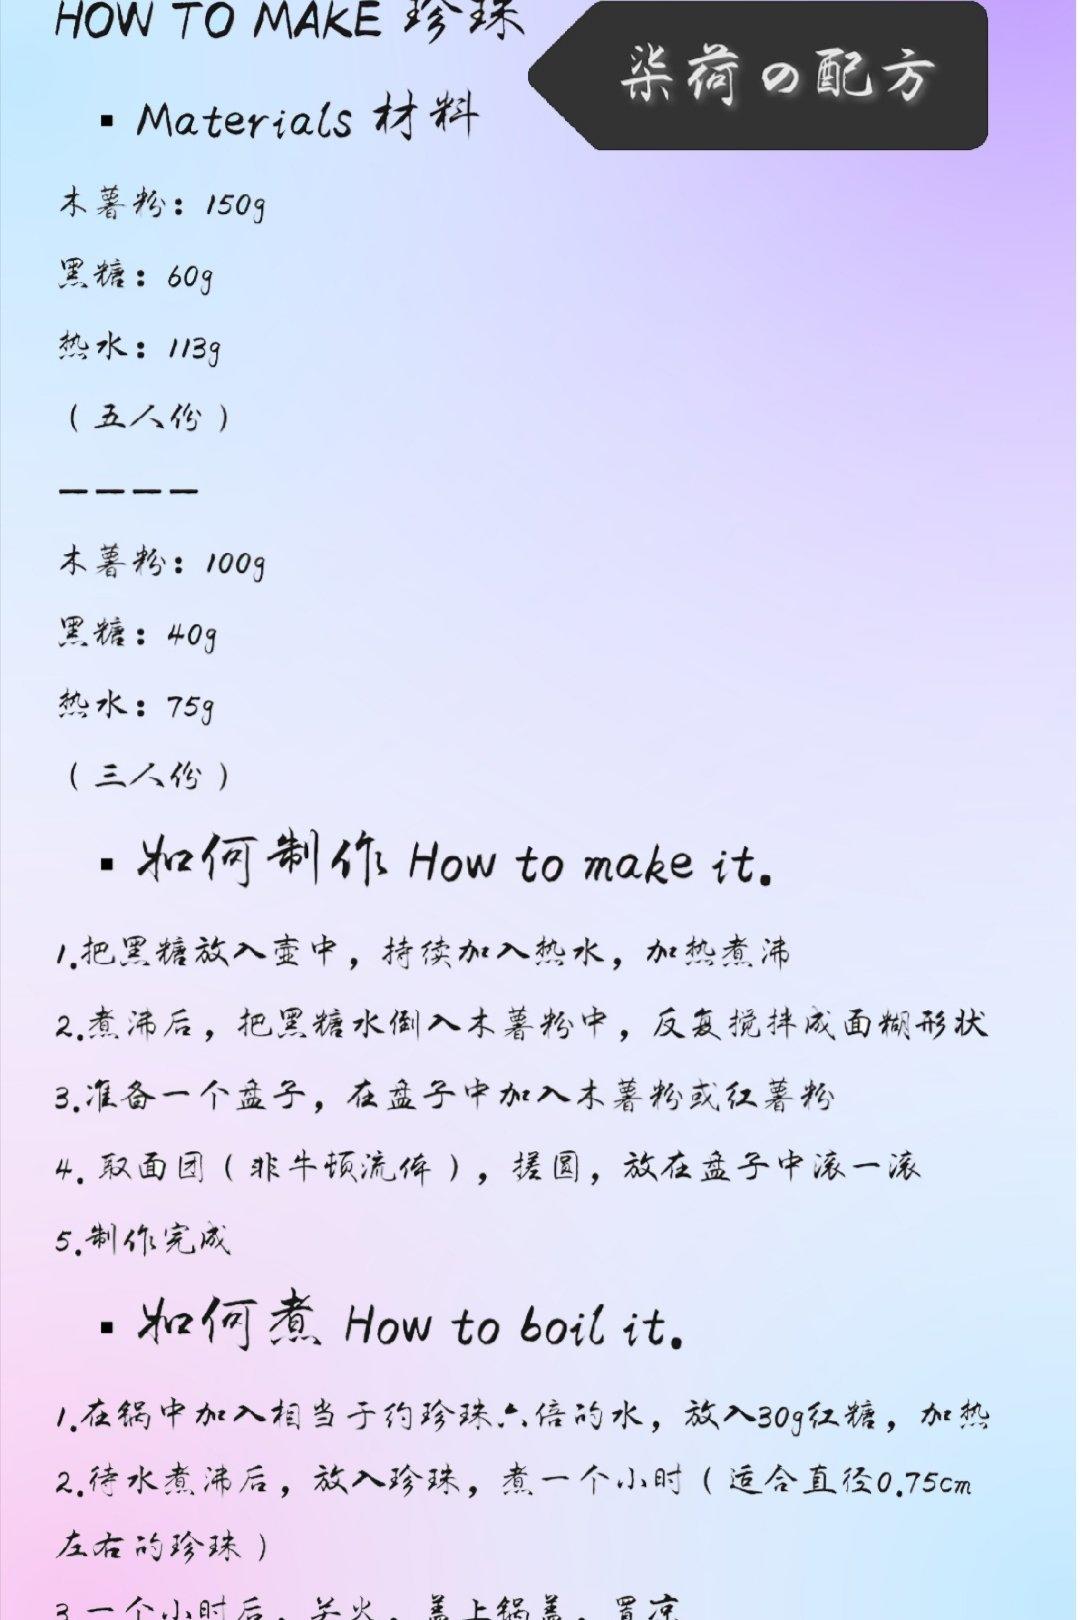 HOW TO MAKE 珍珠
柒荷の配方
▪ Materials 材料
木薯粉：150g
黑糖：60g
热水：113g
（五人份）
————
木薯粉：100g
黑糖：40g
热水：75g
（三人份）
▪ 如何制作 How to make it.
1.把黑糖放入壶中，持续加入热水，加热煮沸
2.煮沸后，把黑糖水倒入木薯粉中，反复搅拌成面糊形状
3.准备一个盘子，在盘子中加入木薯粉或红薯粉
4. 取面团（非牛顿流体），搓圆，放在盘子中滚一滚
5.制作完成
▪ 如何煮 How to boil it.
1.在锅中加入相当于约珍珠六倍的水，放入30g红糖，加热
2.待水煮沸后，放入珍珠，煮一个小时（适合直径0.75cm
左右的珍珠）
3.一个小时后，关火，盖上锅盖，置凉